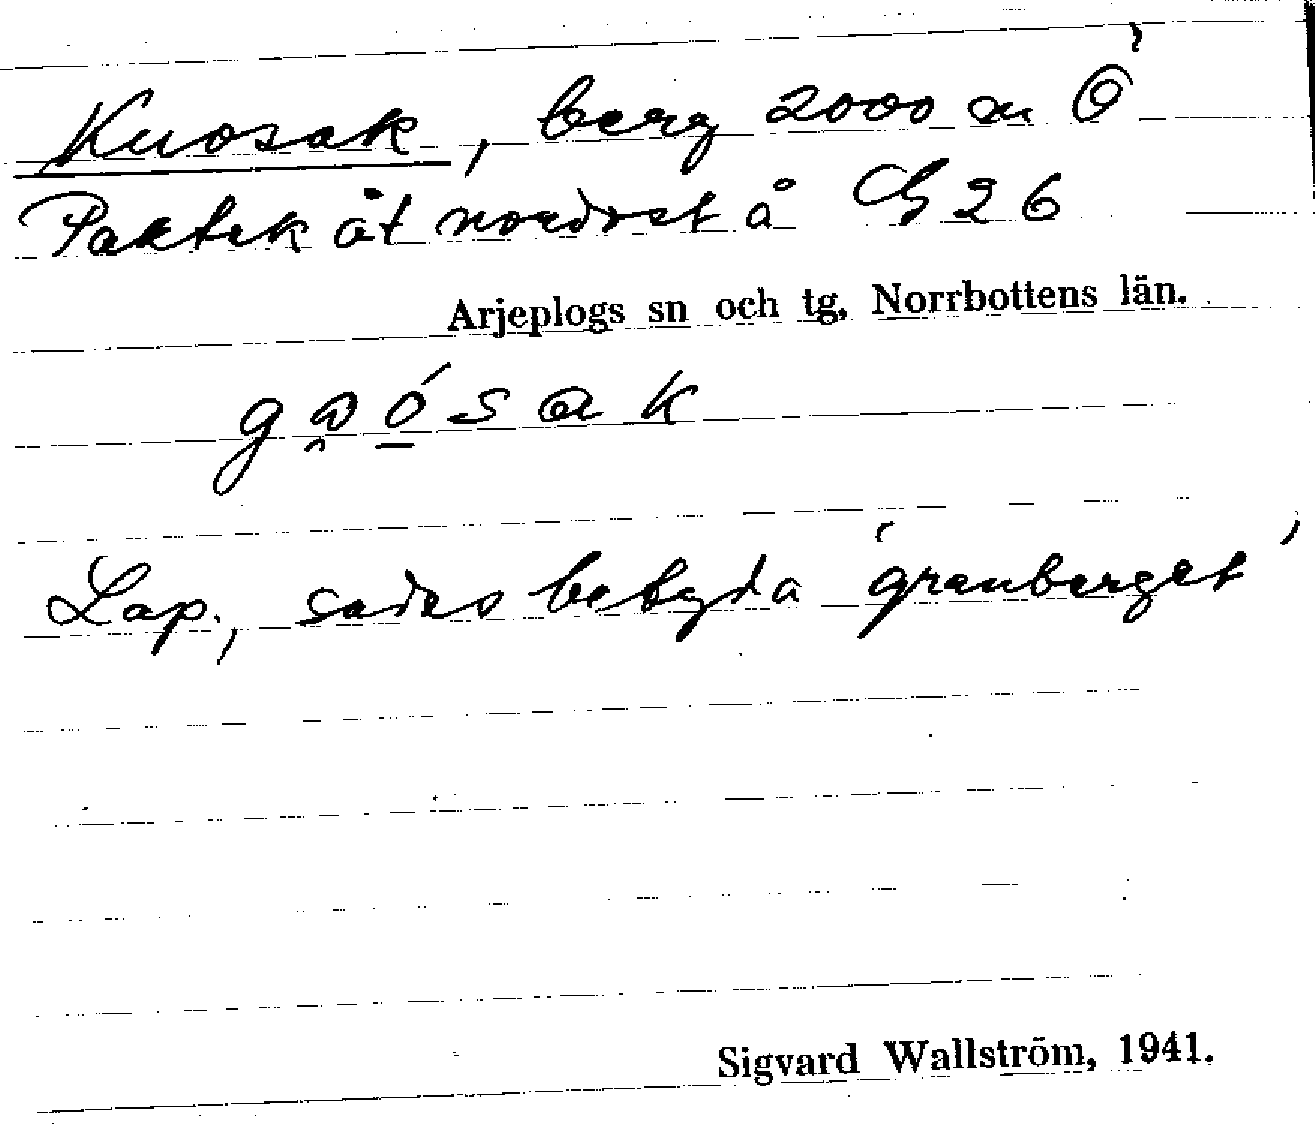 Kuosak, berg 2000 m Ö
Paktek åt nordost å G 26
Arjeplogs sn och tg, Norrbottens län.
Lap., sades betyda 'granberget'
Sigvard Wallström, 1941.